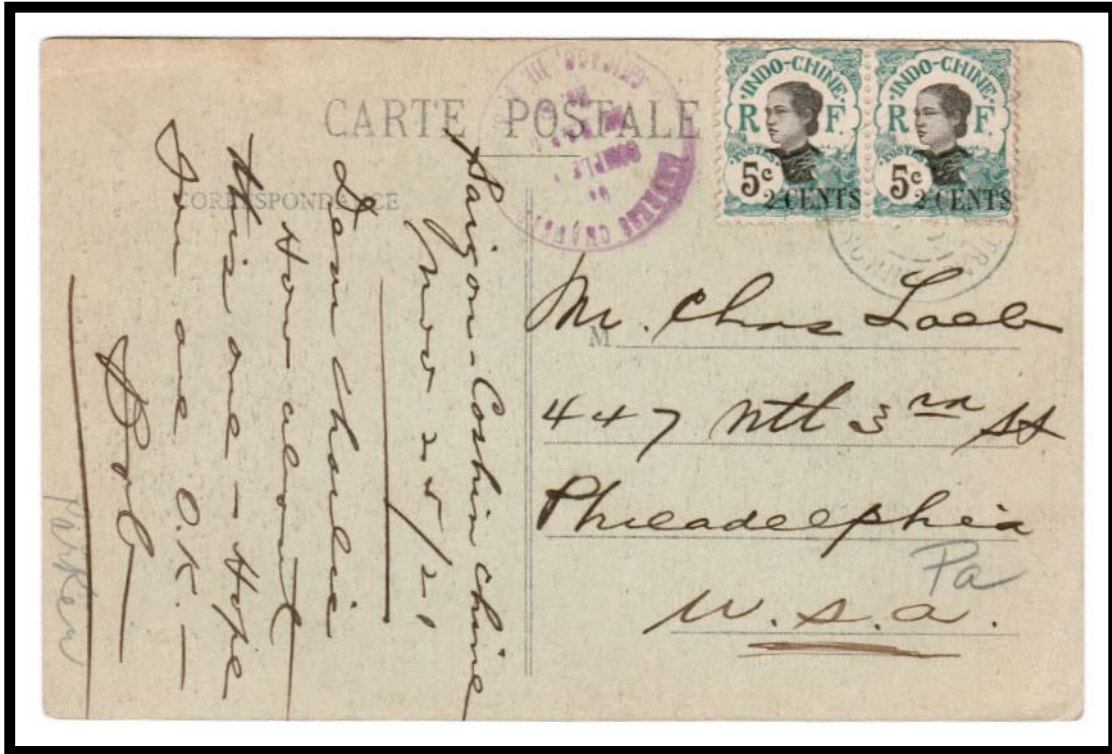 CARTE POSTALE
CORRESPONDANCE
INDO-CHINE
R F
POSTES
5c
2 CENTS
INDO-CHINE
R F
POSTES
5c
2 CENTS
Saigon - Cochin chine
Nov 25/21
Dear Charlie
How about
this one - Hope
You are O.K. -
Bob
Parker
M
Mr. Chas Loeb
447 Nth 3rd St
Philadelphia
Pa
U.S.A.